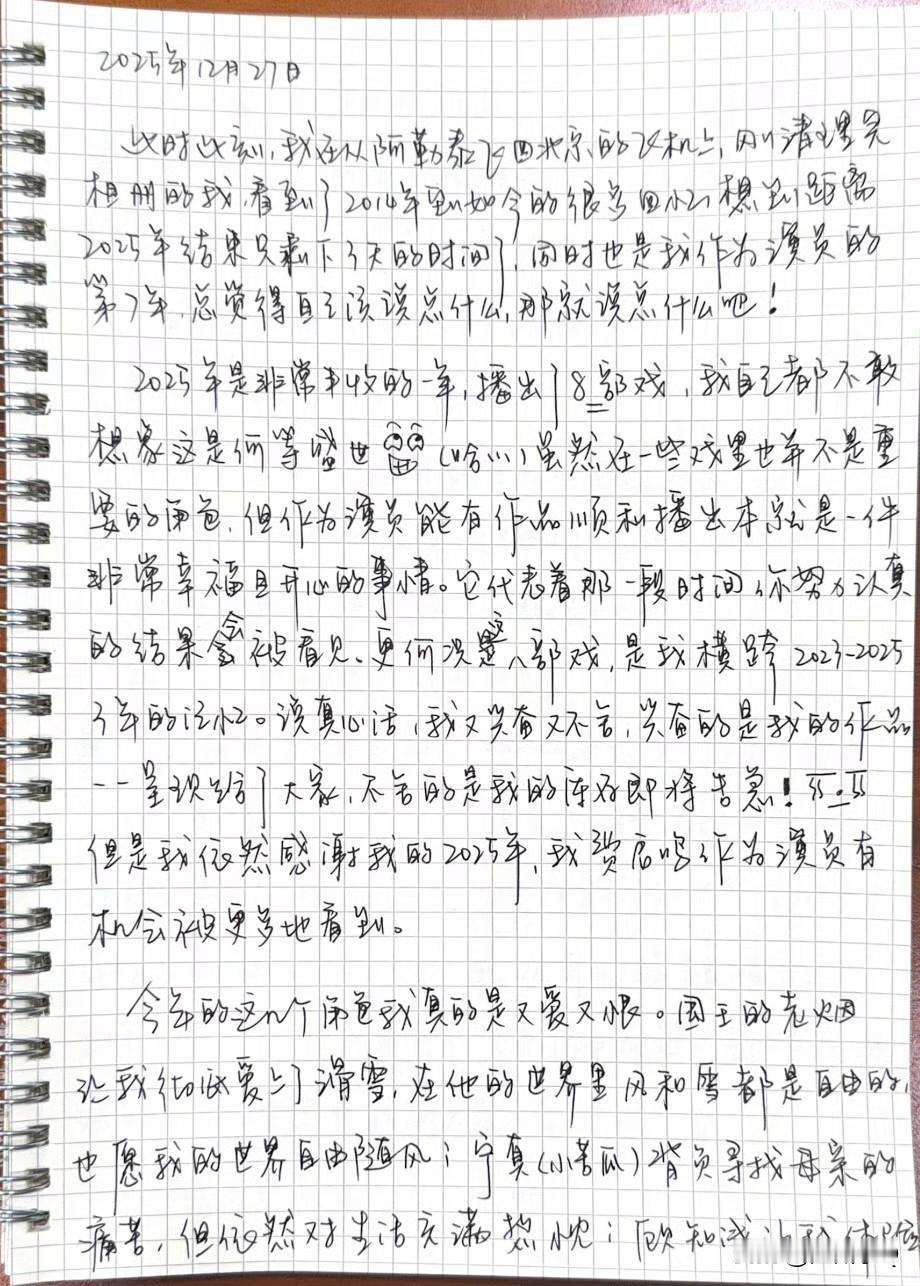 2025年12月27日
此时此刻,我在从阿勒泰飞回北京的飞机上,刚刚清理完
相册的我看到了2014年到如今的很多回忆,想到距离
2025年结束只剩下3天的时间了,同时也是我作为演员的
第7年,总觉得自己该说点什么,那就说点什么吧!
2025年是非常丰收的一年,播出了8部戏,我自己都不敢
想象这是何等盛世(哈…)虽然在一些戏里也并不是重
要的角色,但作为演员能有作品顺利播出本就是一件
非常幸福且开心的事情。它代表着那一段时间你努力认真
的结果会被看见、更何况这八部戏,是我横跨2023-2025
3年的记忆。说真心话,我又兴奋又不舍,兴奋的是我的作品
一一呈现给了大家,不舍的是我的库存即将告急!
但是我依然感谢我的2025年,我费启鸣作为演员有
机会被更多地看到。
今年的这几个角色我真的是又爱又恨。国王的老烟
让我彻底爱上了滑雪,在他的世界里风和雪都是自由的,
也愿我的世界自由随风;宁真(小苦瓜)背负寻找母亲的
痛苦,但依然对生活充满热忱;顾知浅让我体验